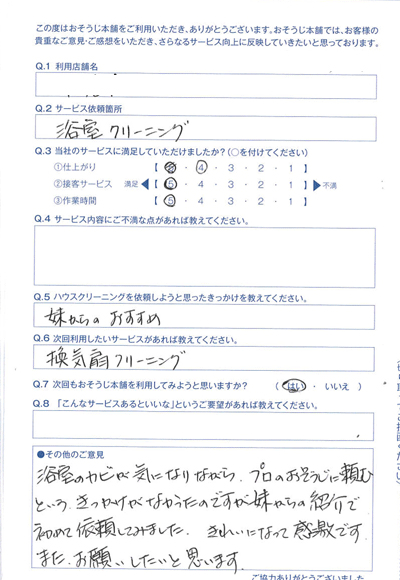 この度はおそうじ本舗をご利用いただき、ありがとうございます。おそうじ本舗では、お客様の
貴重なご意見・ご感想をいただき、さらなるサービス向上に反映していきたいと思っております。
Q.1 利用店舗名
Q.2 サービス依頼箇所
浴室クリーニング
Q.3 当社のサービスに満足していただけましたか?(○を付けてください)
①仕上がり 【 5 ・ 4 ・ 3 ・ 2 ・ 1 】
②接客サービス 満足 【 5 ・ 4 ・ 3 ・ 2 ・ 1 】 不満
③作業時間 【 5 ・ 4 ・ 3 ・ 2 ・ 1 】
Q.4 サービス内容にご不満な点があれば教えてください。
Q.5 ハウスクリーニングを依頼しようと思ったきっかけを教えてください。
妹からの おすすめ
Q.6 次回利用したいサービスがあれば教えてください。
換気扇クリーニング
Q.7 次回もおそうじ本舗を利用してみようと思いますか? ( はい ・ いいえ )
Q.8 「こんなサービスあるといいな」というご要望があれば教えてください。
●その他のご意見
浴室のカビが気になりながら、プロのおそうじに頼む
という きっかけがなかったのですが妹からの紹介で
初めて依頼してみました。 きれいになって感激です。
また、お願いしたいと思います。
ご協力ありがとうございました。